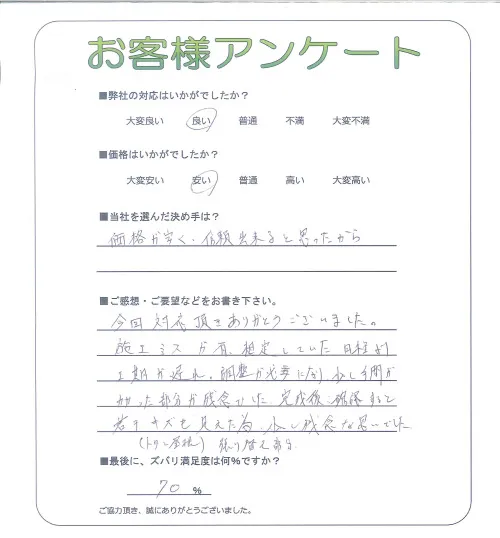 お客様アンケート
■弊社の対応はいかがでしたか？
大変良い 良い 普通 不満 大変不満
■価格はいかがでしたか？
大変安い 安い 普通 高い 大変高い
■当社を選んだ決め手は？
価格が安く、信頼出来ると思ったから
■ご感想・ご要望などをお書き下さい。
今回対応頂きありがとうございました。
施工ミスが有、想定していた日程より
工期が遅れ、調整が必要になり、少し手間が
かかった部分が残念でした。完成後、確認すると
若干キズも見えた為、少し残念な思いでした
(トタン屋根) 張り替え部分
■最後に、ズバリ満足度は何％ですか？
70 ％
ご協力頂き、誠にありがとうございました。